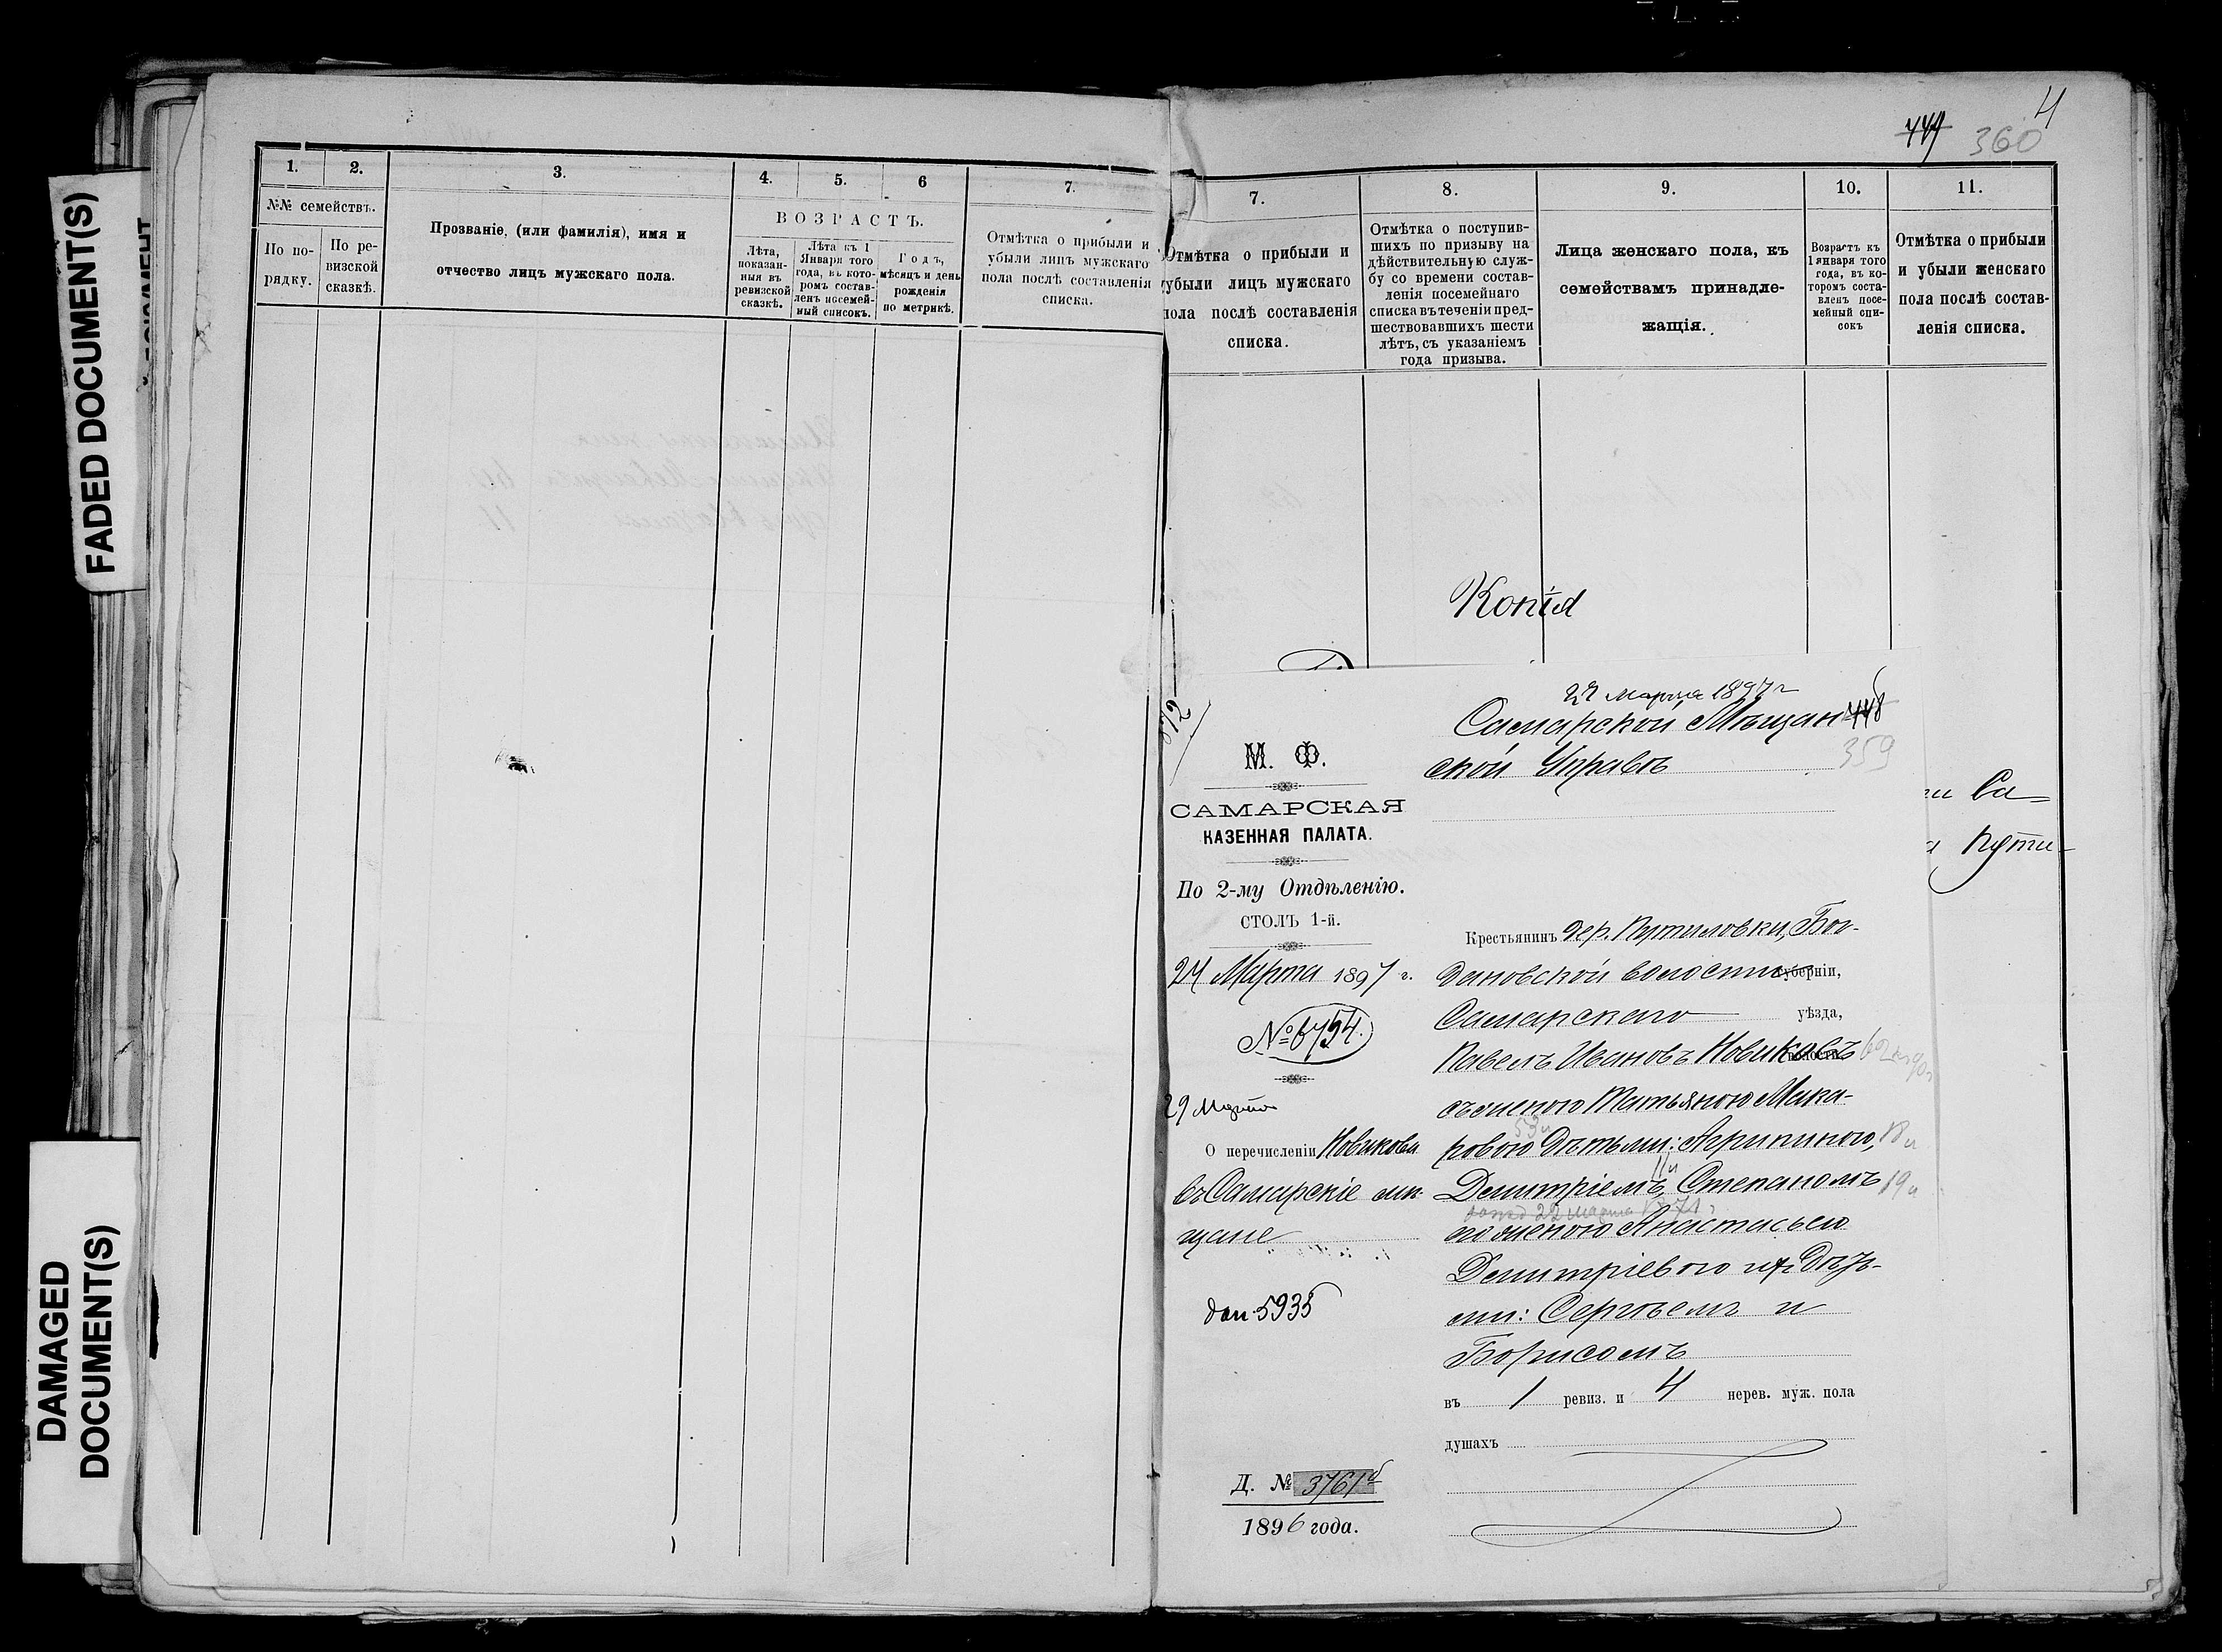 FADED DOCUMENT(S)
DAMAGED
DOCUMENT(S)
1.
2.
3.
4.
5.
6
7.
№№ семействъ.
По по-
рядку.
По ре-
визской
сказкѣ.
Прозваніе, (или фамилія), имя и
отчество лицъ мужскаго пола.
ВОЗРАСТЪ.
Лѣта,
показан-
ныя въ
ревизской
сказкѣ.
Лѣта къ 1
Января того
года, въ кото-
ромъ состав-
ленъ посемей-
ный списокъ.
Годъ,
мѣсяцъ и день
рожденія
по метрикѣ.
Отмѣтка о прибыли и
убыли лицъ мужскаго
пола послѣ составленія
списка.
449
360
4
7.
8.
9.
10.
11.
Отмѣтка о прибыли и
убыли лицъ мужскаго
пола послѣ составленія
списка.
Отмѣтка о поступив-
шихъ по призыву на
дѣйствительную служ-
бу со времени состав-
ленія посемейнаго
списка въ теченіи пред-
шествовавшихъ шести
лѣтъ, съ указаніемъ
года призыва.
Лица женскаго пола, къ
семействамъ принадле-
жащія.
Возрастъ къ
1 января того
года, въ ко-
торомъ соста-
вленъ посе-
мейный спи-
сокъ
Отмѣтка о прибыли
и убыли женскаго
пола послѣ состав-
ленія списка.
Копія
Са-
Пути-
М. Ф.
САМАРСКАЯ
КАЗЕННАЯ ПАЛАТА.
По 2-му Отдѣленію.
СТОЛЪ 1-й.
24 Марта 1897 г.
№ 6754.
29 Марта
О перечисленіи Новикова
въ Самарскіе мѣ-
щане
5935
Д. № 3761
1896 года.
27 марта 1897 г
Самарской Мѣщан 448
ской Управѣ
359
Крестьянинъ дер. Путиловки, Бог-
дановской волости губерніи,
Самарскаго уѣзда,
Павелъ Ивановъ Новиковъ волости
съ женою Татьяною Мака-
ровою дѣтьми: Агрипиною,
Димитріемъ, Степаномъ 19
22 марта
его женою Анастасьею
Димитріевою и дѣть-
ми: Сергѣемъ и
Борисомъ
въ 1 ревиз. и 4 нерев. муж. пола
душахъ